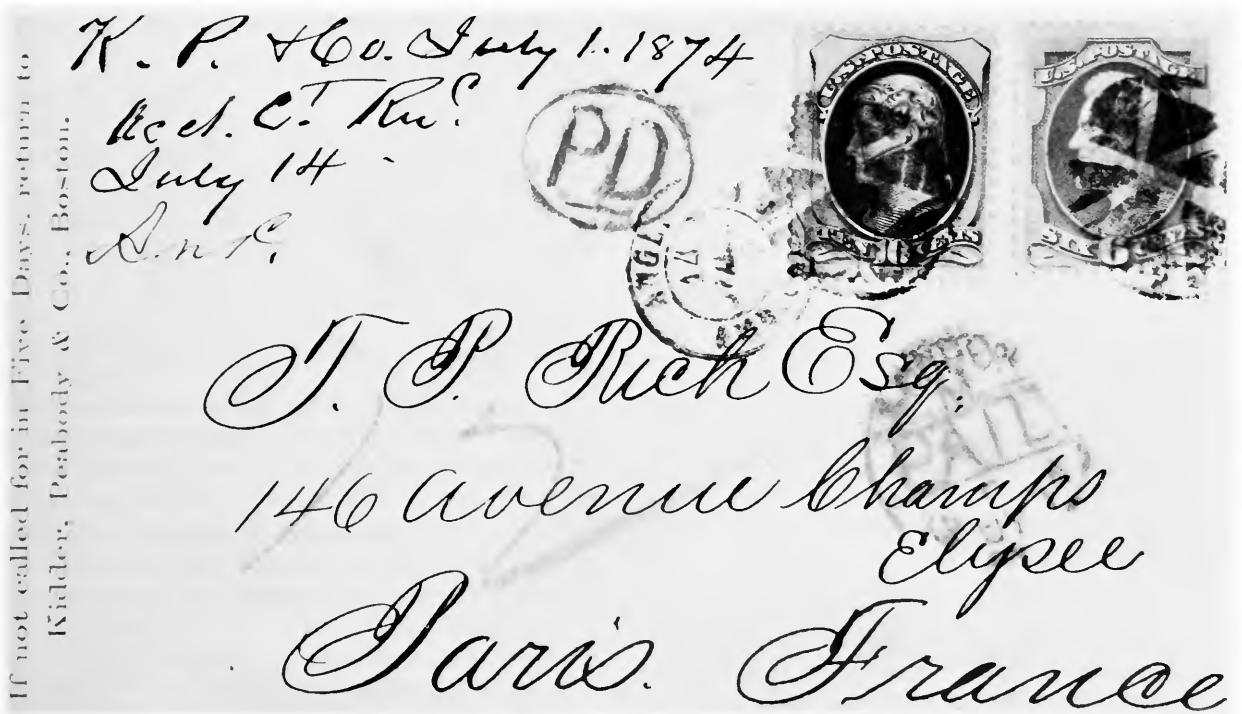 If not called for in Five Days, return to
Kidder, Peabody & Co., Boston.
K. P. & Co. July 1. 1874
July 14
PD
U.S. POSTAGE
TEN 10 CENTS
U.S. POSTAGE
SIX 6 CENTS
T. P. Rich Esq.
146 Avenue Champs
Elysee
Paris. France